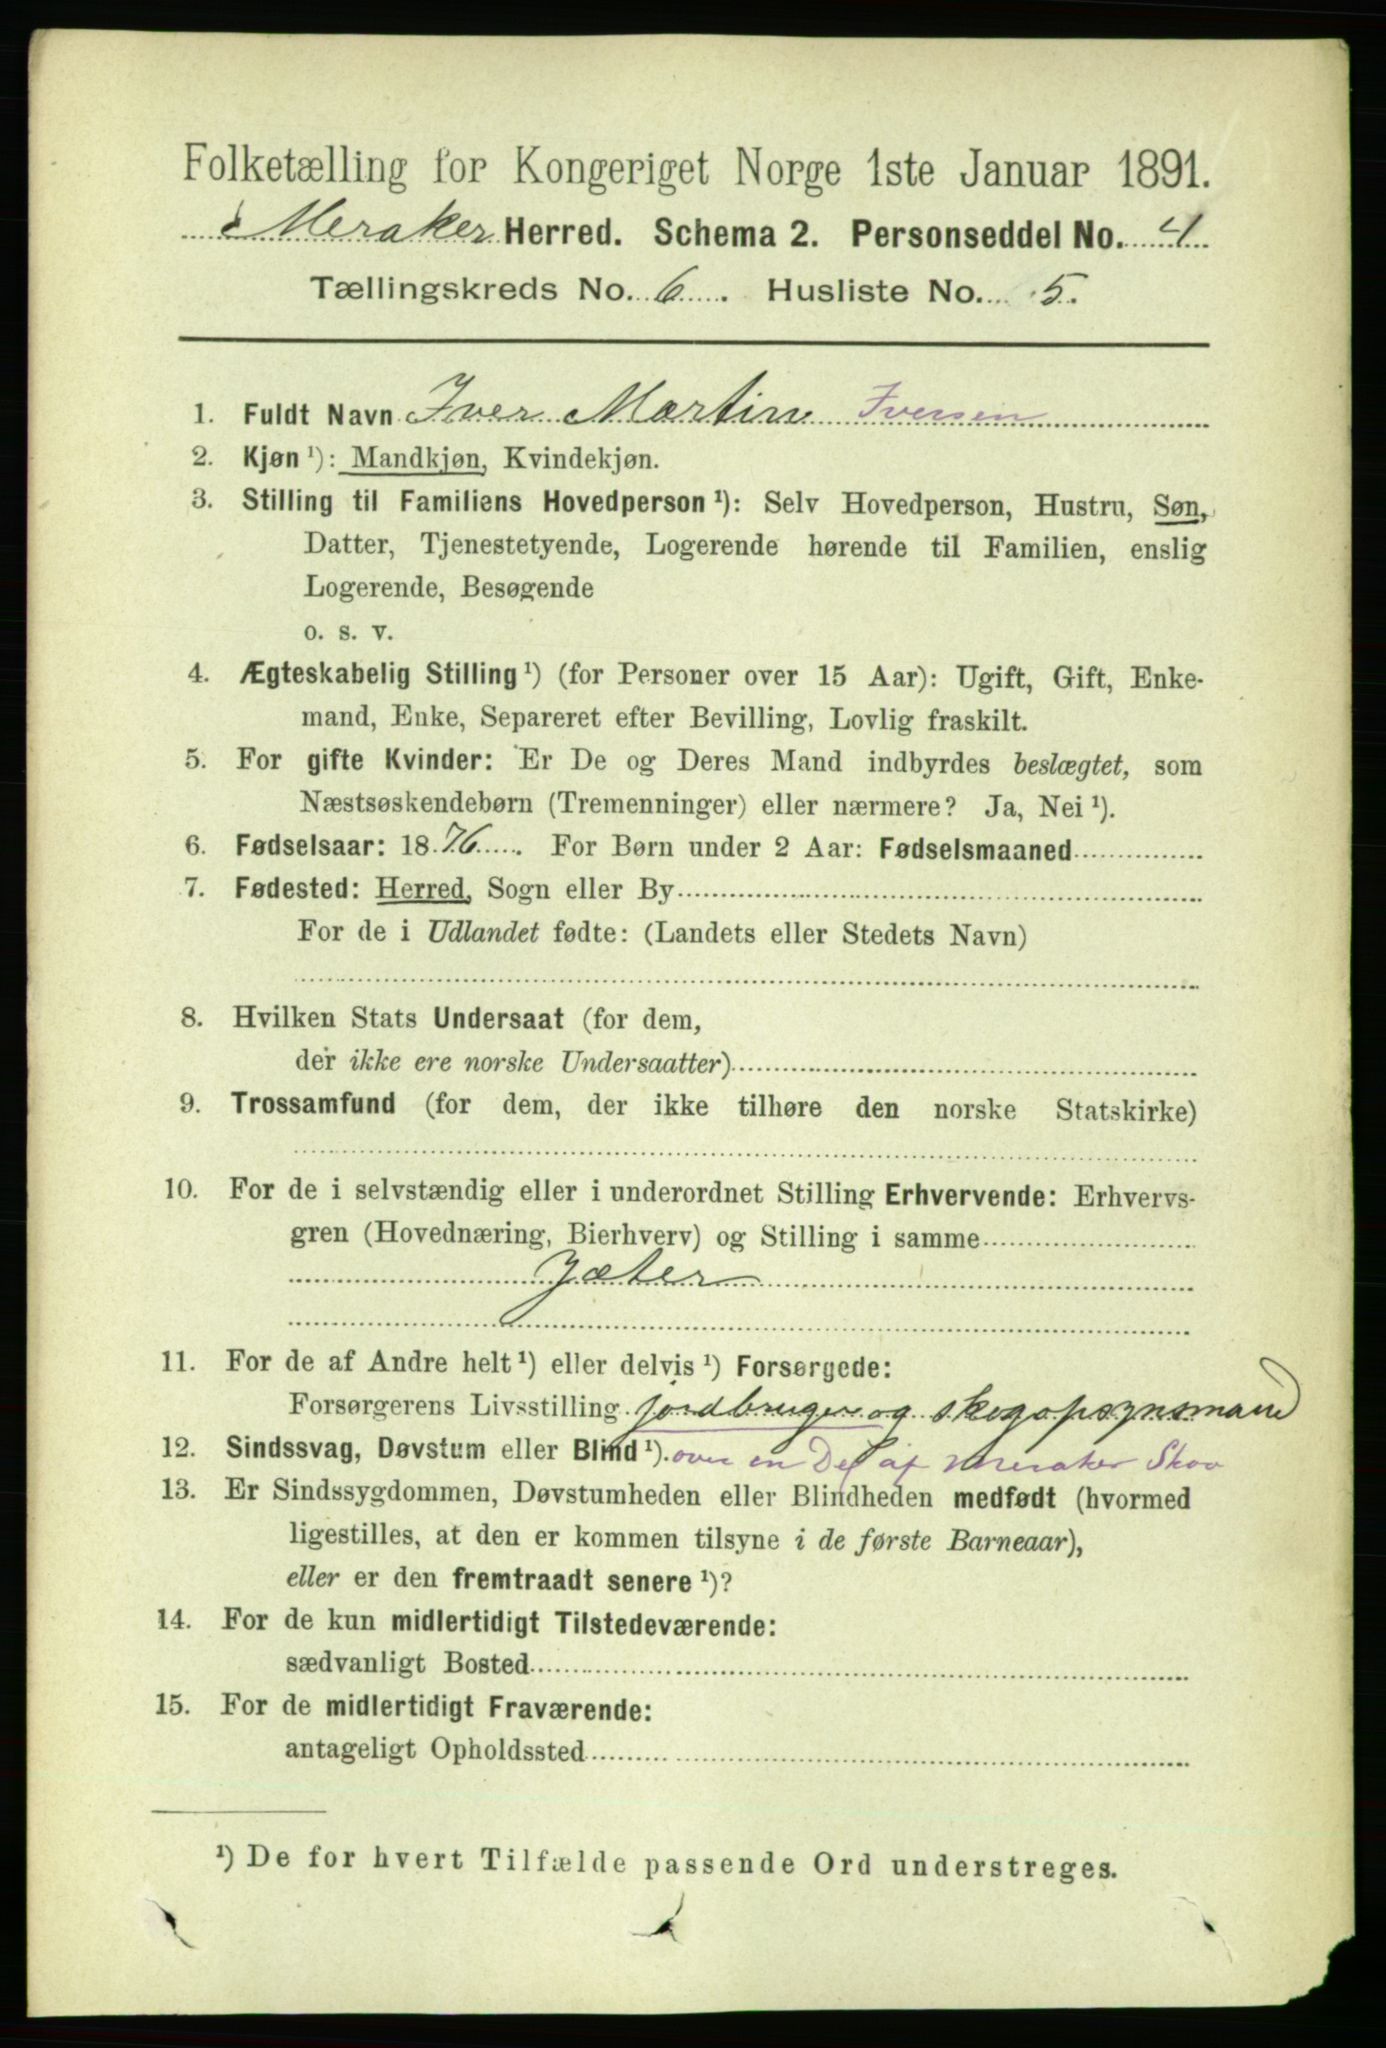 Folketælling for Kongeriget Norge 1ste Januar 1891.
Meraker Herred. Schema 2. Personseddel No. 4
Tællingskreds No. 6. Husliste No. 5.
1. Fuldt Navn Iver Martin Iversen
2. Kjøn ¹): Mandkjøn, Kvindekjøn.
3. Stilling til Familiens Hovedperson ¹): Selv Hovedperson, Hustru, Søn,
Datter, Tjenestetyende, Logerende hørende til Familien, enslig
Logerende, Besøgende
o. s. v.
4. Ægteskabelig Stilling ¹) (for Personer over 15 Aar): Ugift, Gift, Enke-
mand, Enke, Separeret efter Bevilling, Lovlig fraskilt.
5. For gifte Kvinder: Er De og Deres Mand indbyrdes beslægtet, som
Næstsøskendebørn (Tremenninger) eller nærmere? Ja, Nei ¹).
6. Fødselsaar: 1876. For Børn under 2 Aar: Fødselsmaaned
7. Fødested: Herred, Sogn eller By
For de i Udlandet fødte: (Landets eller Stedets Navn)
8. Hvilken Stats Undersaat (for dem,
der ikke ere norske Undersaatter)
9. Trossamfund (for dem, der ikke tilhøre den norske Statskirke)
10. For de i selvstændig eller i underordnet Stilling Erhvervende: Erhvervs-
gren (Hovednæring, Bierhverv) og Stilling i samme
Jæter
11. For de af Andre helt ¹) eller delvis ¹) Forsørgede:
Forsørgerens Livsstilling jordbruger og skogopsynsmand
12. Sindssvag, Døvstum eller Blind ¹). over en Del af Meraker Skov
13. Er Sindssygdommen, Døvstumheden eller Blindheden medfødt (hvormed
ligestilles, at den er kommen tilsyne i de første Barneaar),
eller er den fremtraadt senere ¹)?
14. For de kun midlertidigt Tilstedeværende:
sædvanligt Bosted
15. For de midlertidigt Fraværende:
antageligt Opholdssted
¹) De for hvert Tilfælde passende Ord understreges.